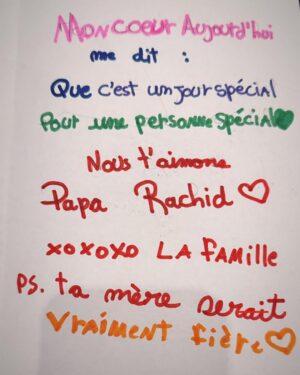 Mon coeur Aujourd'hui
me dit :
Que c'est un jour spécial
Pour une personne spécial
Nous t'aimons
Papa Rachid
xoxoxo LA famille
PS. ta mère serait
vraiment fière